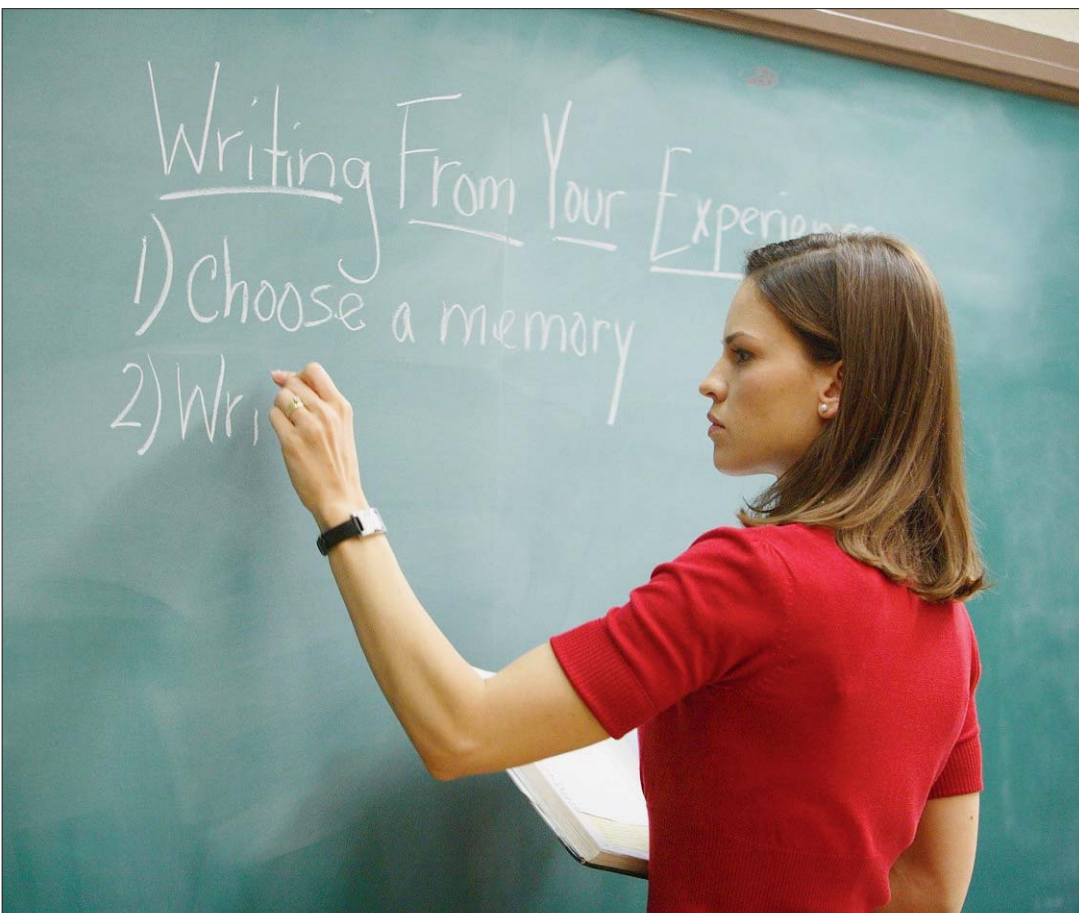 Writing From Your Experience
1) Choose a memory
2) Wri